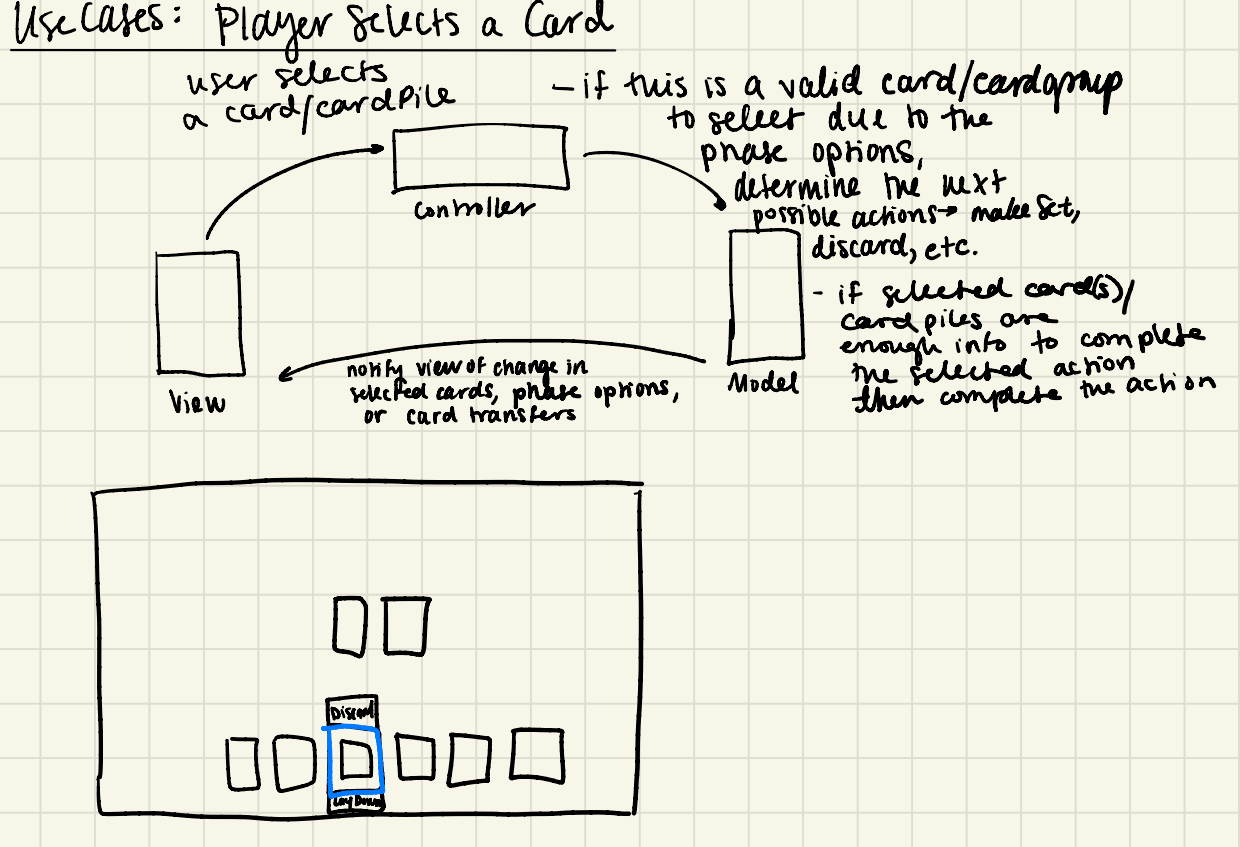 Use Cases: Player Selects a Card
user selects
a card/cardpile
- if this is a valid card/cardgroup
to select due to the
phase options,
determine the next
possible actions→ make set,
discard, etc.
Controller
- if selected card(s)/
card piles are
enough into to complete
the selected action
then complete the action
notify view of change in
selected cards, phase options,
or card transfers
View
Model
Discard
Lay Down